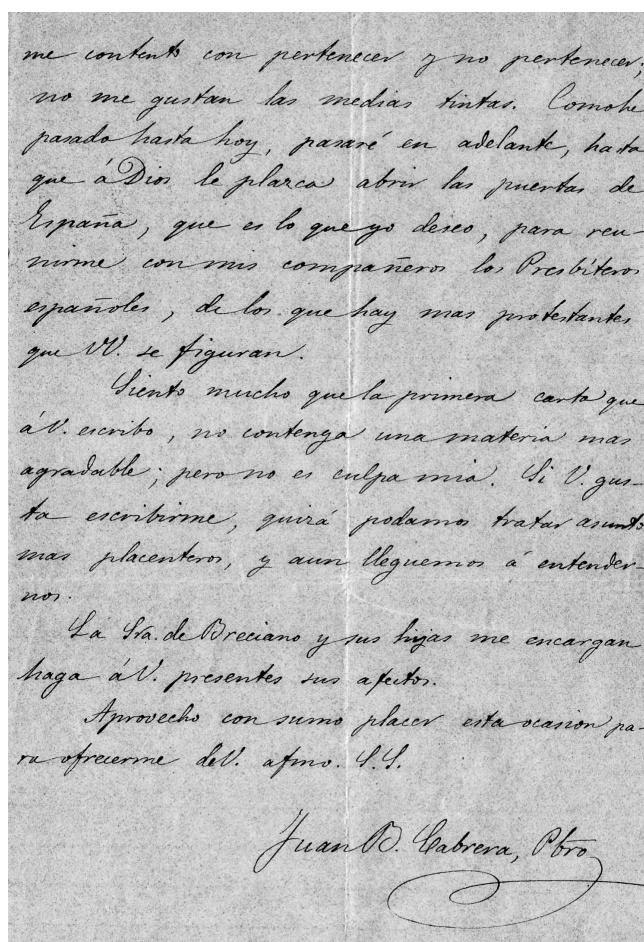 me contento con pertenecer y no pertenecer;
no me gustan las medias tintas. Como he
pasado hasta hoy, pasaré en adelante, hasta
que á Dios le plazca abrir las puertas de
España, que es lo que yo deseo, para reu-
nirme con mis compañeros los Presbíteros
españoles, de los que hay mas protestantes
que VV. se figuran.
Siento mucho que la primera carta que
á V. escribo, no contenga una materia mas
agradable; pero no es culpa mia. Si V. gus-
ta escribirme, quizá podamos tratar asunto
mas placenteros, y aun lleguemos á entender-
nos.
La Sra. de Breciano y sus hijas me encargan
haga á V. presentes sus afectos.
Aprovecho con sumo placer esta ocasion pa-
ra ofrecerme de V. afmo. S.S.
Juan B. Cabrera, Pbro